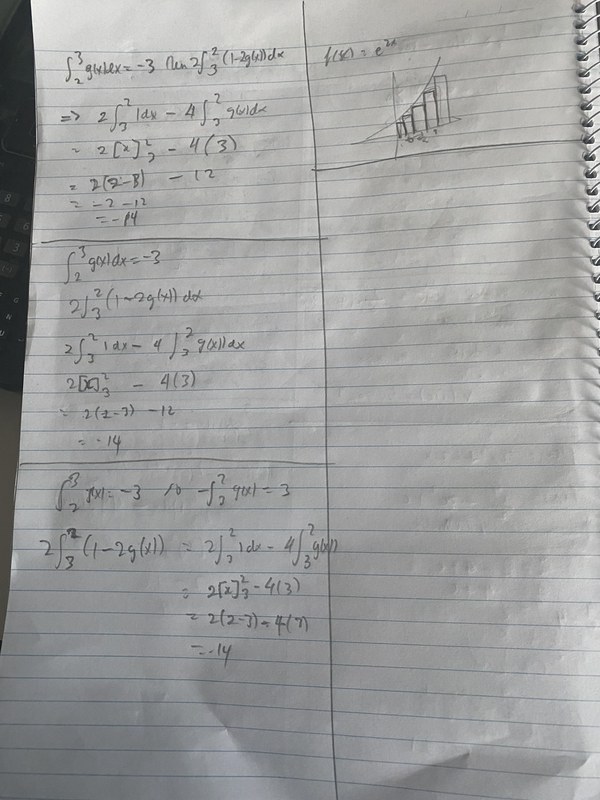 ∫₂³ g(x)dx = -3 then 2∫₃² (1-2g(x))dx
=> 2∫₃² 1dx - 4∫₃² g(x)dx
= 2[x]₃² - 4(3)
= 2(2-3) - 12
= -2 -12
= -14
∫₂³ g(x)dx = -3
2∫₃² (1-2g(x)) dx
2∫₃² 1dx - 4∫₃² g(x))dx
2[x]₃² - 4(3)
= 2(2-3) -12
= -14
∫₂³ g(x) = -3 so -∫₂³ g(x) = 3
2∫₃² (1-2g(x)) = 2∫₃² 1dx - 4∫₃² g(x)
= 2[x]₃² - 4(3)
= 2(2-3) - 4(3)
= -14
f(x) = e²ˣ